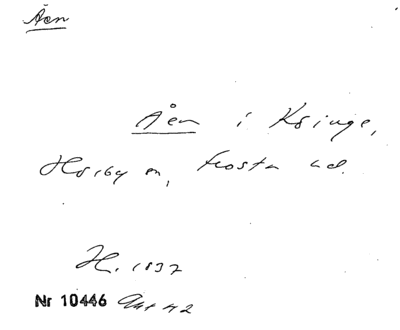 Åen
Åen i Köinge,
Hörby sn, Frosta hd.
H. 1832
Nr 10446 42